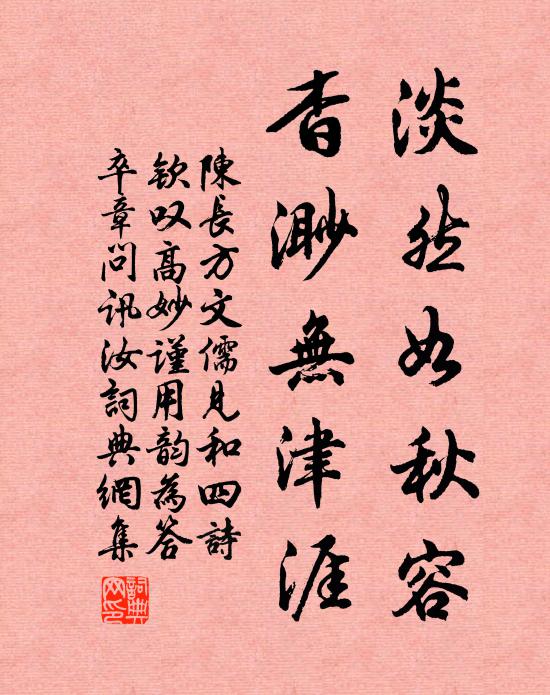 淡然如秋容
杳渺無津涯
陳長方文儒見和四詩
欽叹高妙謹用韵為答
卒章問訊汝詞典網集
詞典网印